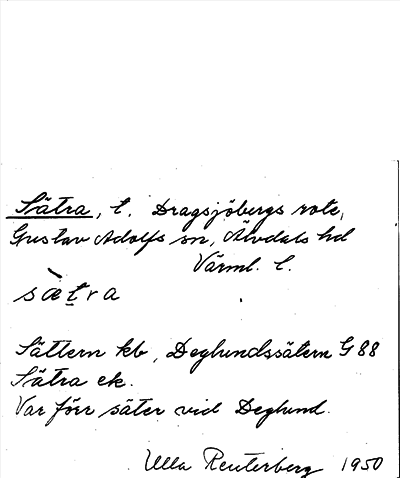 Sätra, t. Dragsjöbergs rote,
Gustav Adolfs sn, Älvdals hd
Värml. l.
sæ̀tra
Sättern kb, Deglundssätern G 88
Sätra ek.
Var förr säter vid Deglund.
Ulla Reuterberg 1950